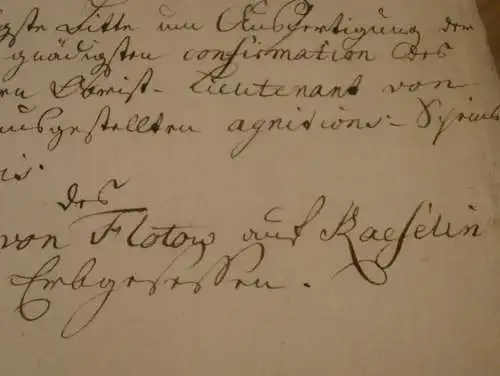 igste Bitte um Ausfertigung der
gnädigsten confirmation des
rn Obrist-Lieutenant von
ausgestellten agnitions-Scheins
is.
des
von Flotow auf Kaeselin
Erbgesessen.